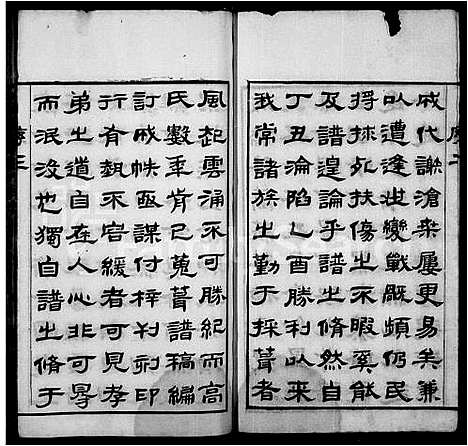 戚代謝滄桑屢更易矣兼
以遭逢世變戰厩頻仍民
捋捄死扶傷之不暇奚能
及譜遑論乎譜之脩然自
丁丑淪陷乙酉勝利以來
我常諸族之勤于採葺者
風起雲涌不可勝紀而高
氏數年肯已蒐葺譜稿編
訂成帙亟謀付梓刋刷印
行有埶不容緩者可見孝
弟之道自在人心非可冺
而泯沒也獨自譜之脩于
序二